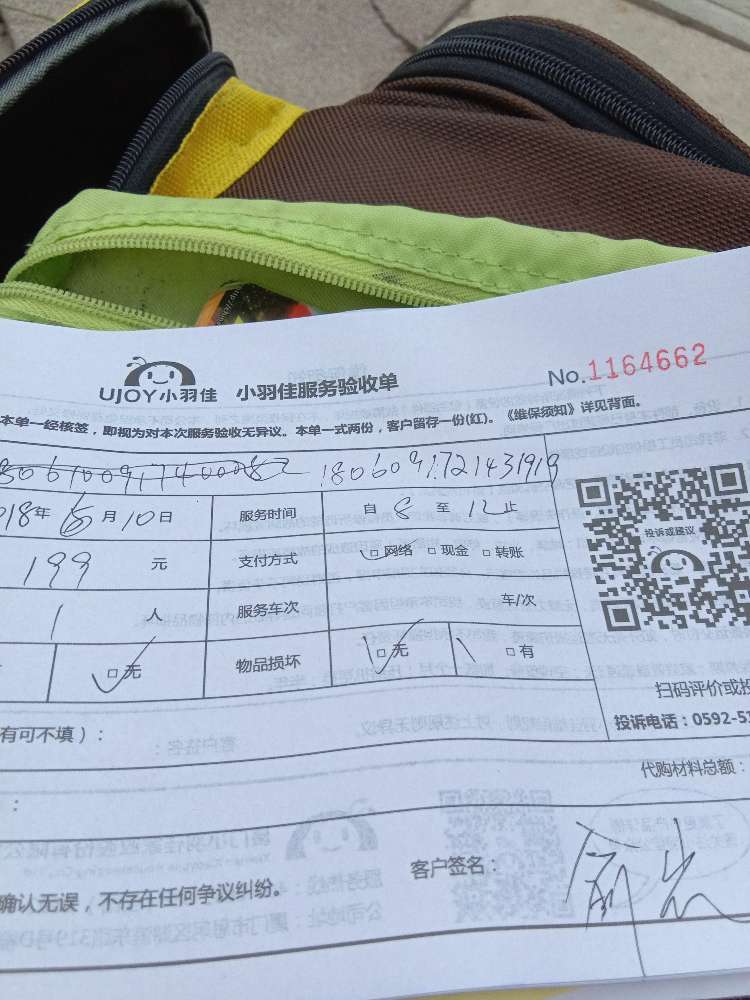 UJOY小羽佳 小羽佳服务验收单 No.1164662
本单一经核签，即视为对本次服务验收无异议。本单一式两份，客户留存一份(红)。《维保须知》详见背面。
1806091721431919
018年 6月10日 服务时间 自 8 至 12止
199 元 支付方式 网络 现金 转账
投诉或建议
1 人 服务车次 车/次
无 物品损坏 无 有
扫码评价或投
有可不填）：
投诉电话：0592-5
代购材料总额：
：
客户签名：
确认无误，不存在任何争议纠纷。